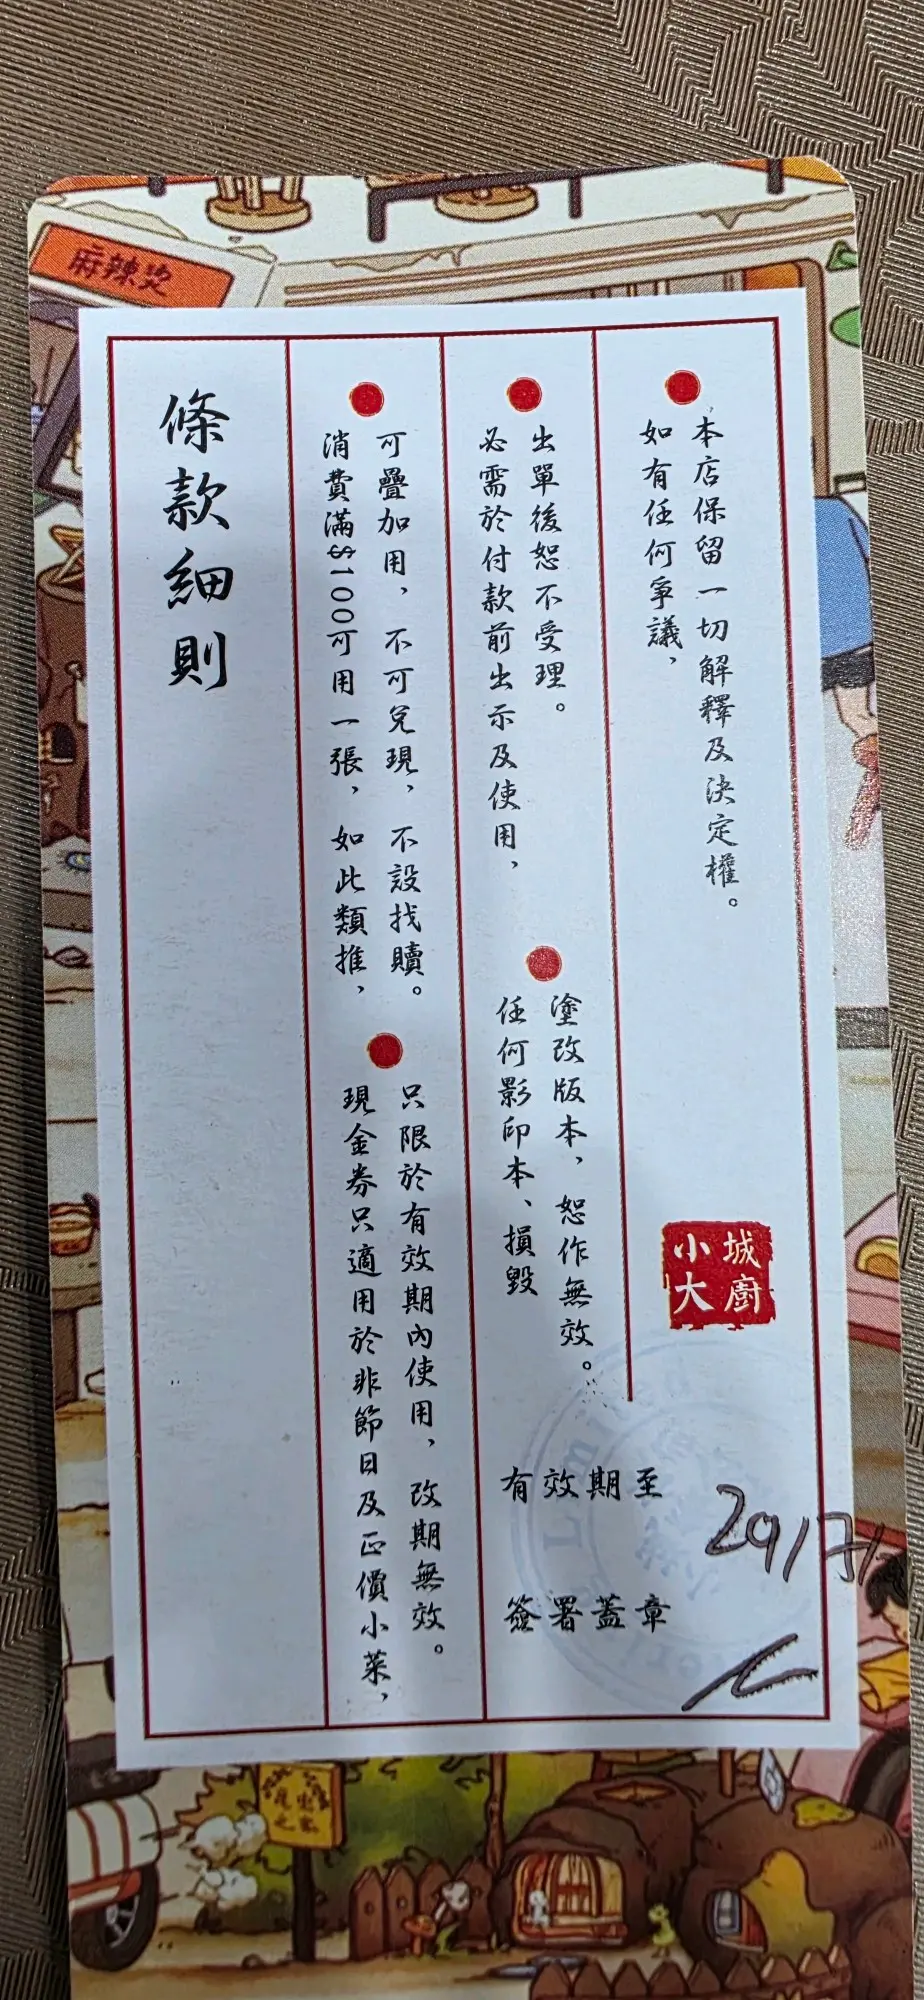 麻辣烫
條款細則
消費滿$100可用一張，如此類推，
可疊加用，不可兌現，不設找贖。
現金券只適用於非節日及正價小菜，
只限於有效期內使用，改期無效。
必需於付款前出示及使用，
出單後恕不受理。
任何影印本、損毀
塗改版本，恕作無效。
如有任何爭議，
本店保留一切解釋及決定權。
小城
大廚
有效期至 29/7/
簽署蓋章